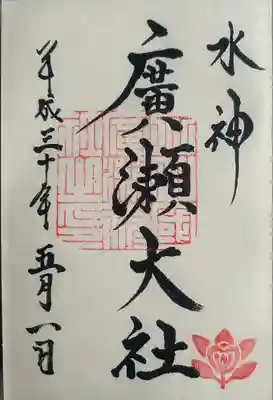 水神
廣瀬大社
平成三十年五月八日